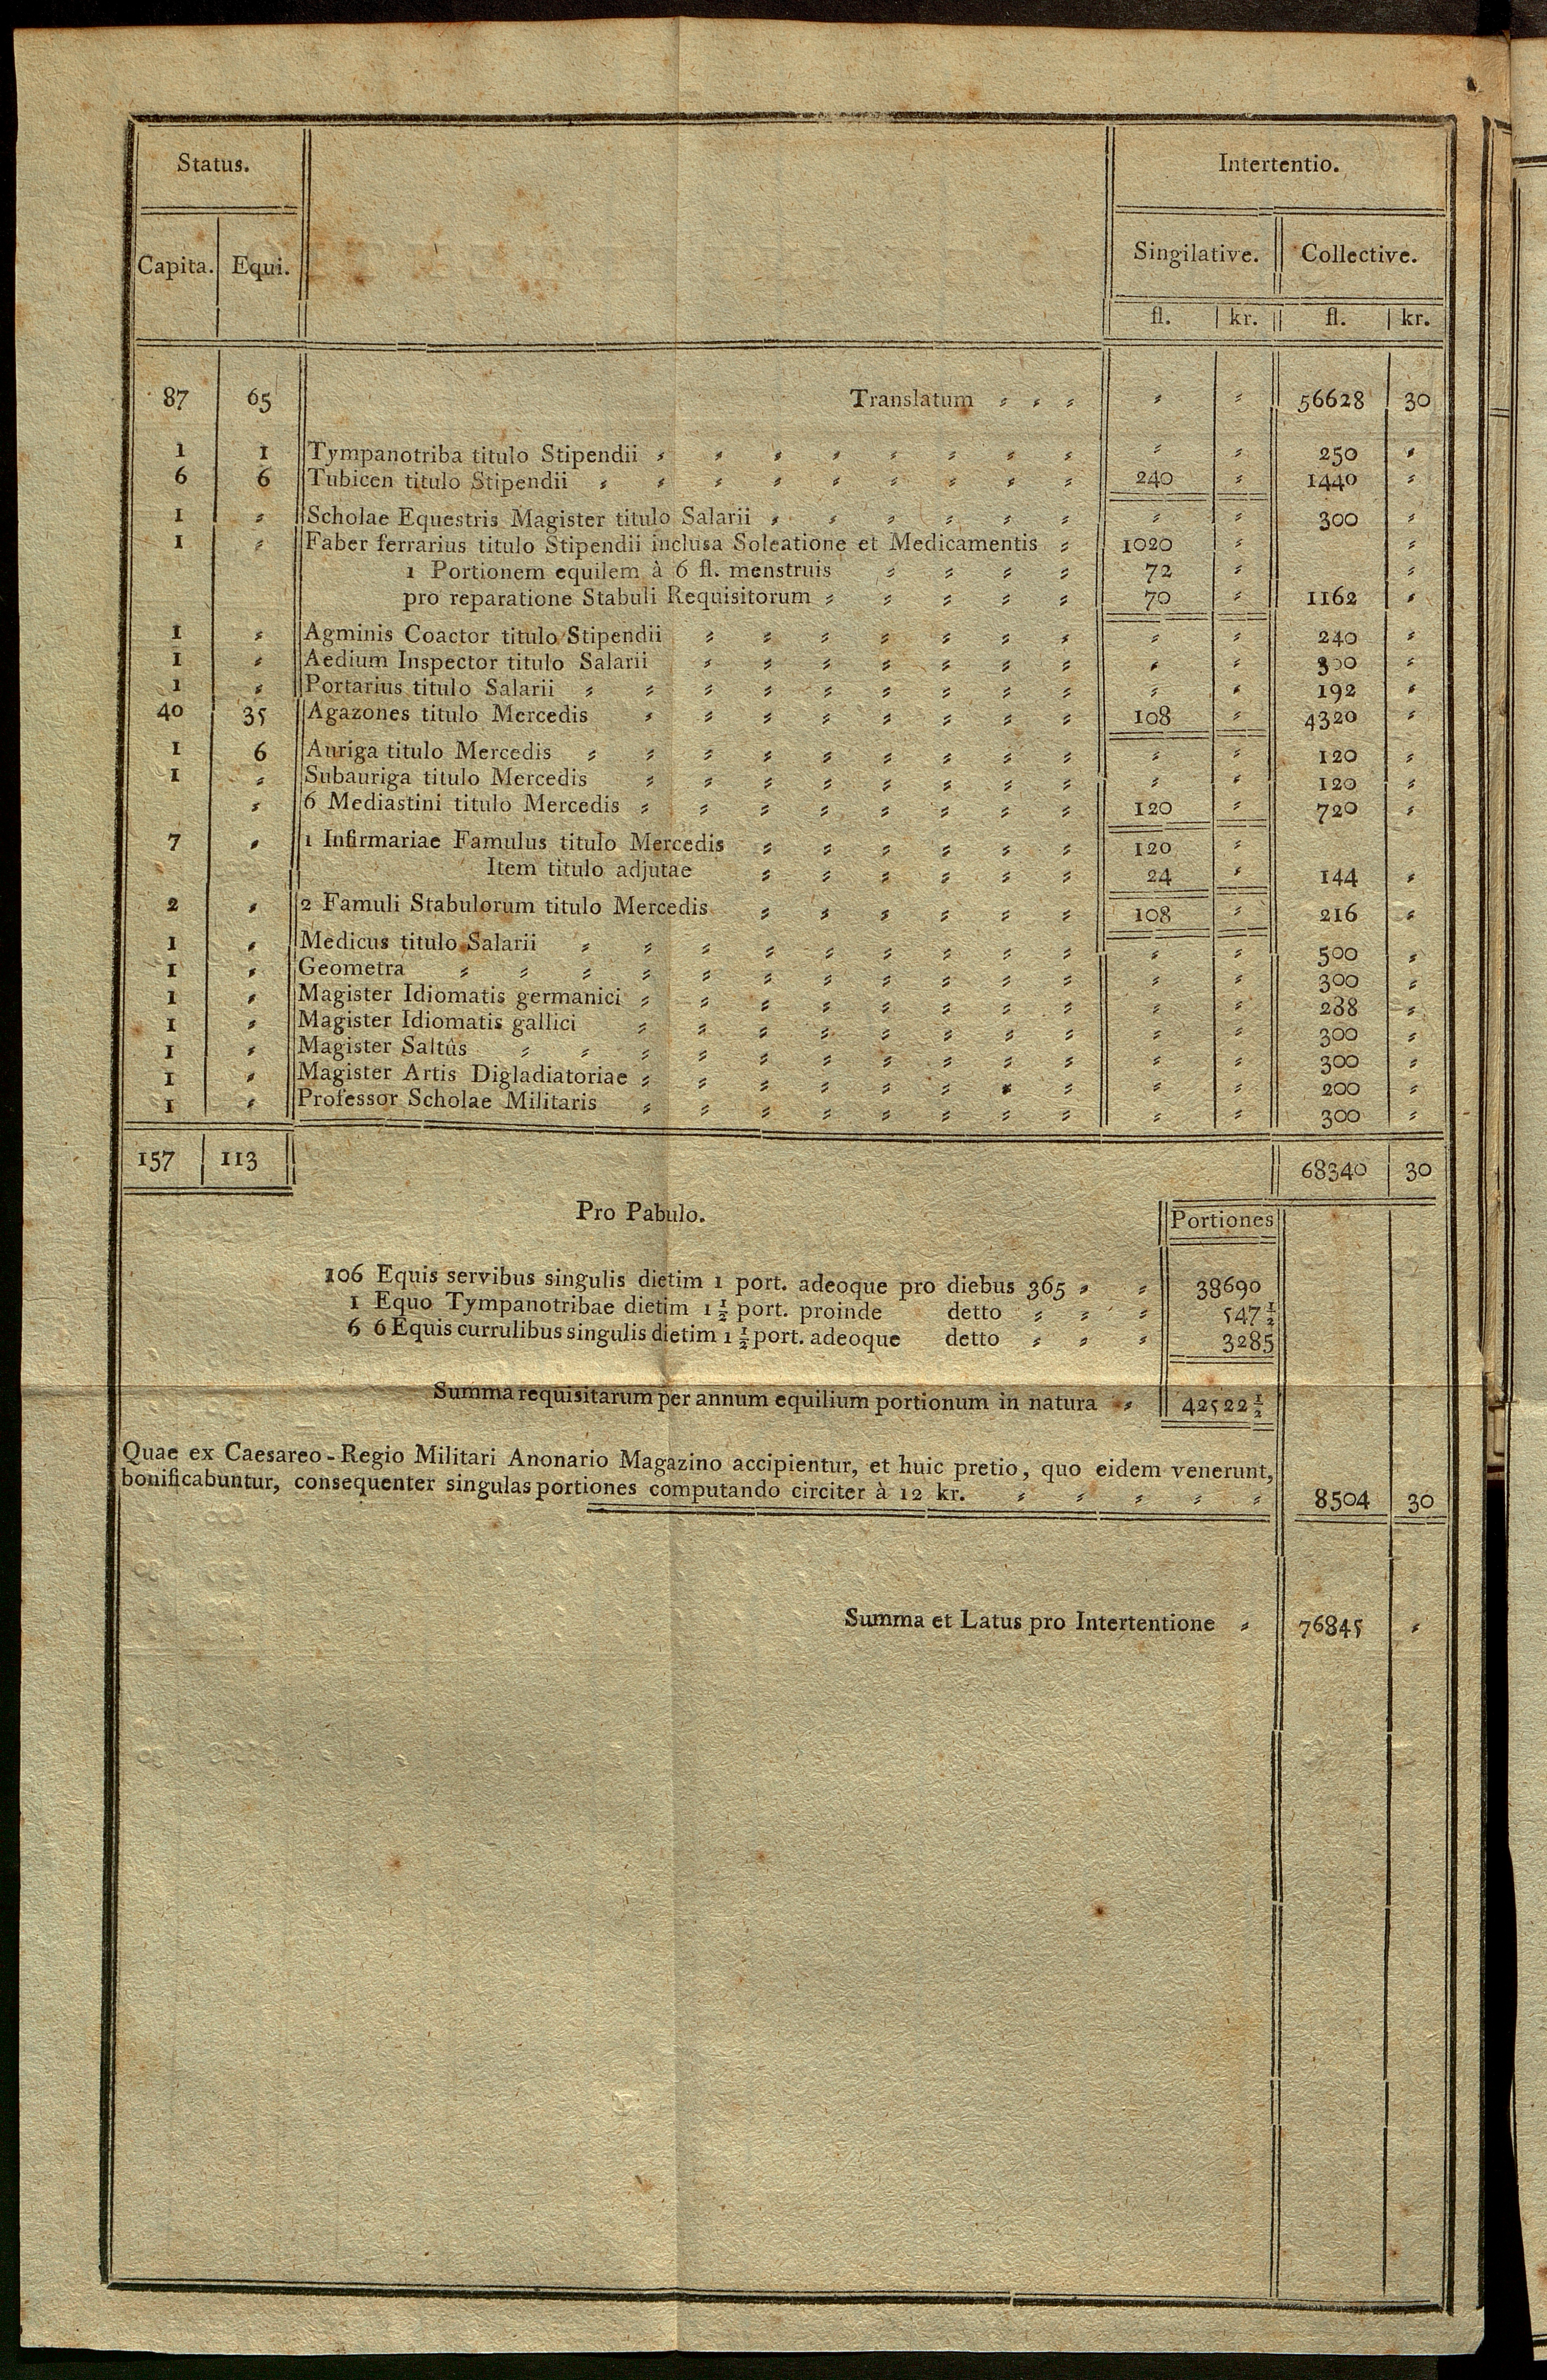 Status. Intertentio.
Capita. Equi. Singilative. Collective.
fl. kr. fl. kr.
87 65 Translatum 56628 30
1 1 Tympanotriba titulo Stipendii 250
6 6 Tubicen titulo Stipendii 240 1440
1 Scholae Equestris Magister titulo Salarii 300
1 Faber ferrarius titulo Stipendii inclusa Soleatione et Medicamentis 1020
1 Portionem equilem à 6 fl. menstruis 72
pro reparatione Stabuli Requisitorum 70 1162
1 Agminis Coactor titulo Stipendii 240
1 Aedium Inspector titulo Salarii 300
1 Portarius titulo Salarii 192
40 35 Agazones titulo Mercedis 108 4320
1 6 Auriga titulo Mercedis 120
1 Subauriga titulo Mercedis 120
6 Mediastini titulo Mercedis 120 720
7 1 Infirmariae Famulus titulo Mercedis 120
Item titulo adjutae 24 144
2 2 Famuli Stabulorum titulo Mercedis 108 216
1 Medicus titulo Salarii 500
1 Geometra 300
1 Magister Idiomatis germanici 288
1 Magister Idiomatis gallici 300
1 Magister Saltûs 300
1 Magister Artis Digladiatoriae 200
1 Professor Scholae Militaris 300
157 113 68340 30
Pro Pabulo. Portiones
106 Equis servibus singulis dietim 1 port. adeoque pro diebus 365 38690
1 Equo Tympanotribae dietim 1 1/2 port. proinde detto 547 1/2
6 6 Equis currulibus singulis dietim 1 1/2 port. adeoque detto 3285
Summa requisitarum per annum equilium portionum in natura 42522 1/2
Quae ex Caesareo-Regio Militari Anonario Magazino accipientur, et huic pretio, quo eidem venerunt,
bonificabuntur, consequenter singulas portiones computando circiter à 12 kr. 8504 30
Summa et Latus pro Intertentione 76845